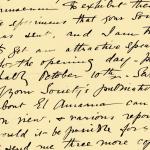 Exhibit the
specimens that your Soc
as sent, and I am h
to get an attractive spec
for the opening day -
October 10th - Sa
of your Society's publicati
about El Amarna can
on view, & various repor
ould it be possible for
send me three more cop